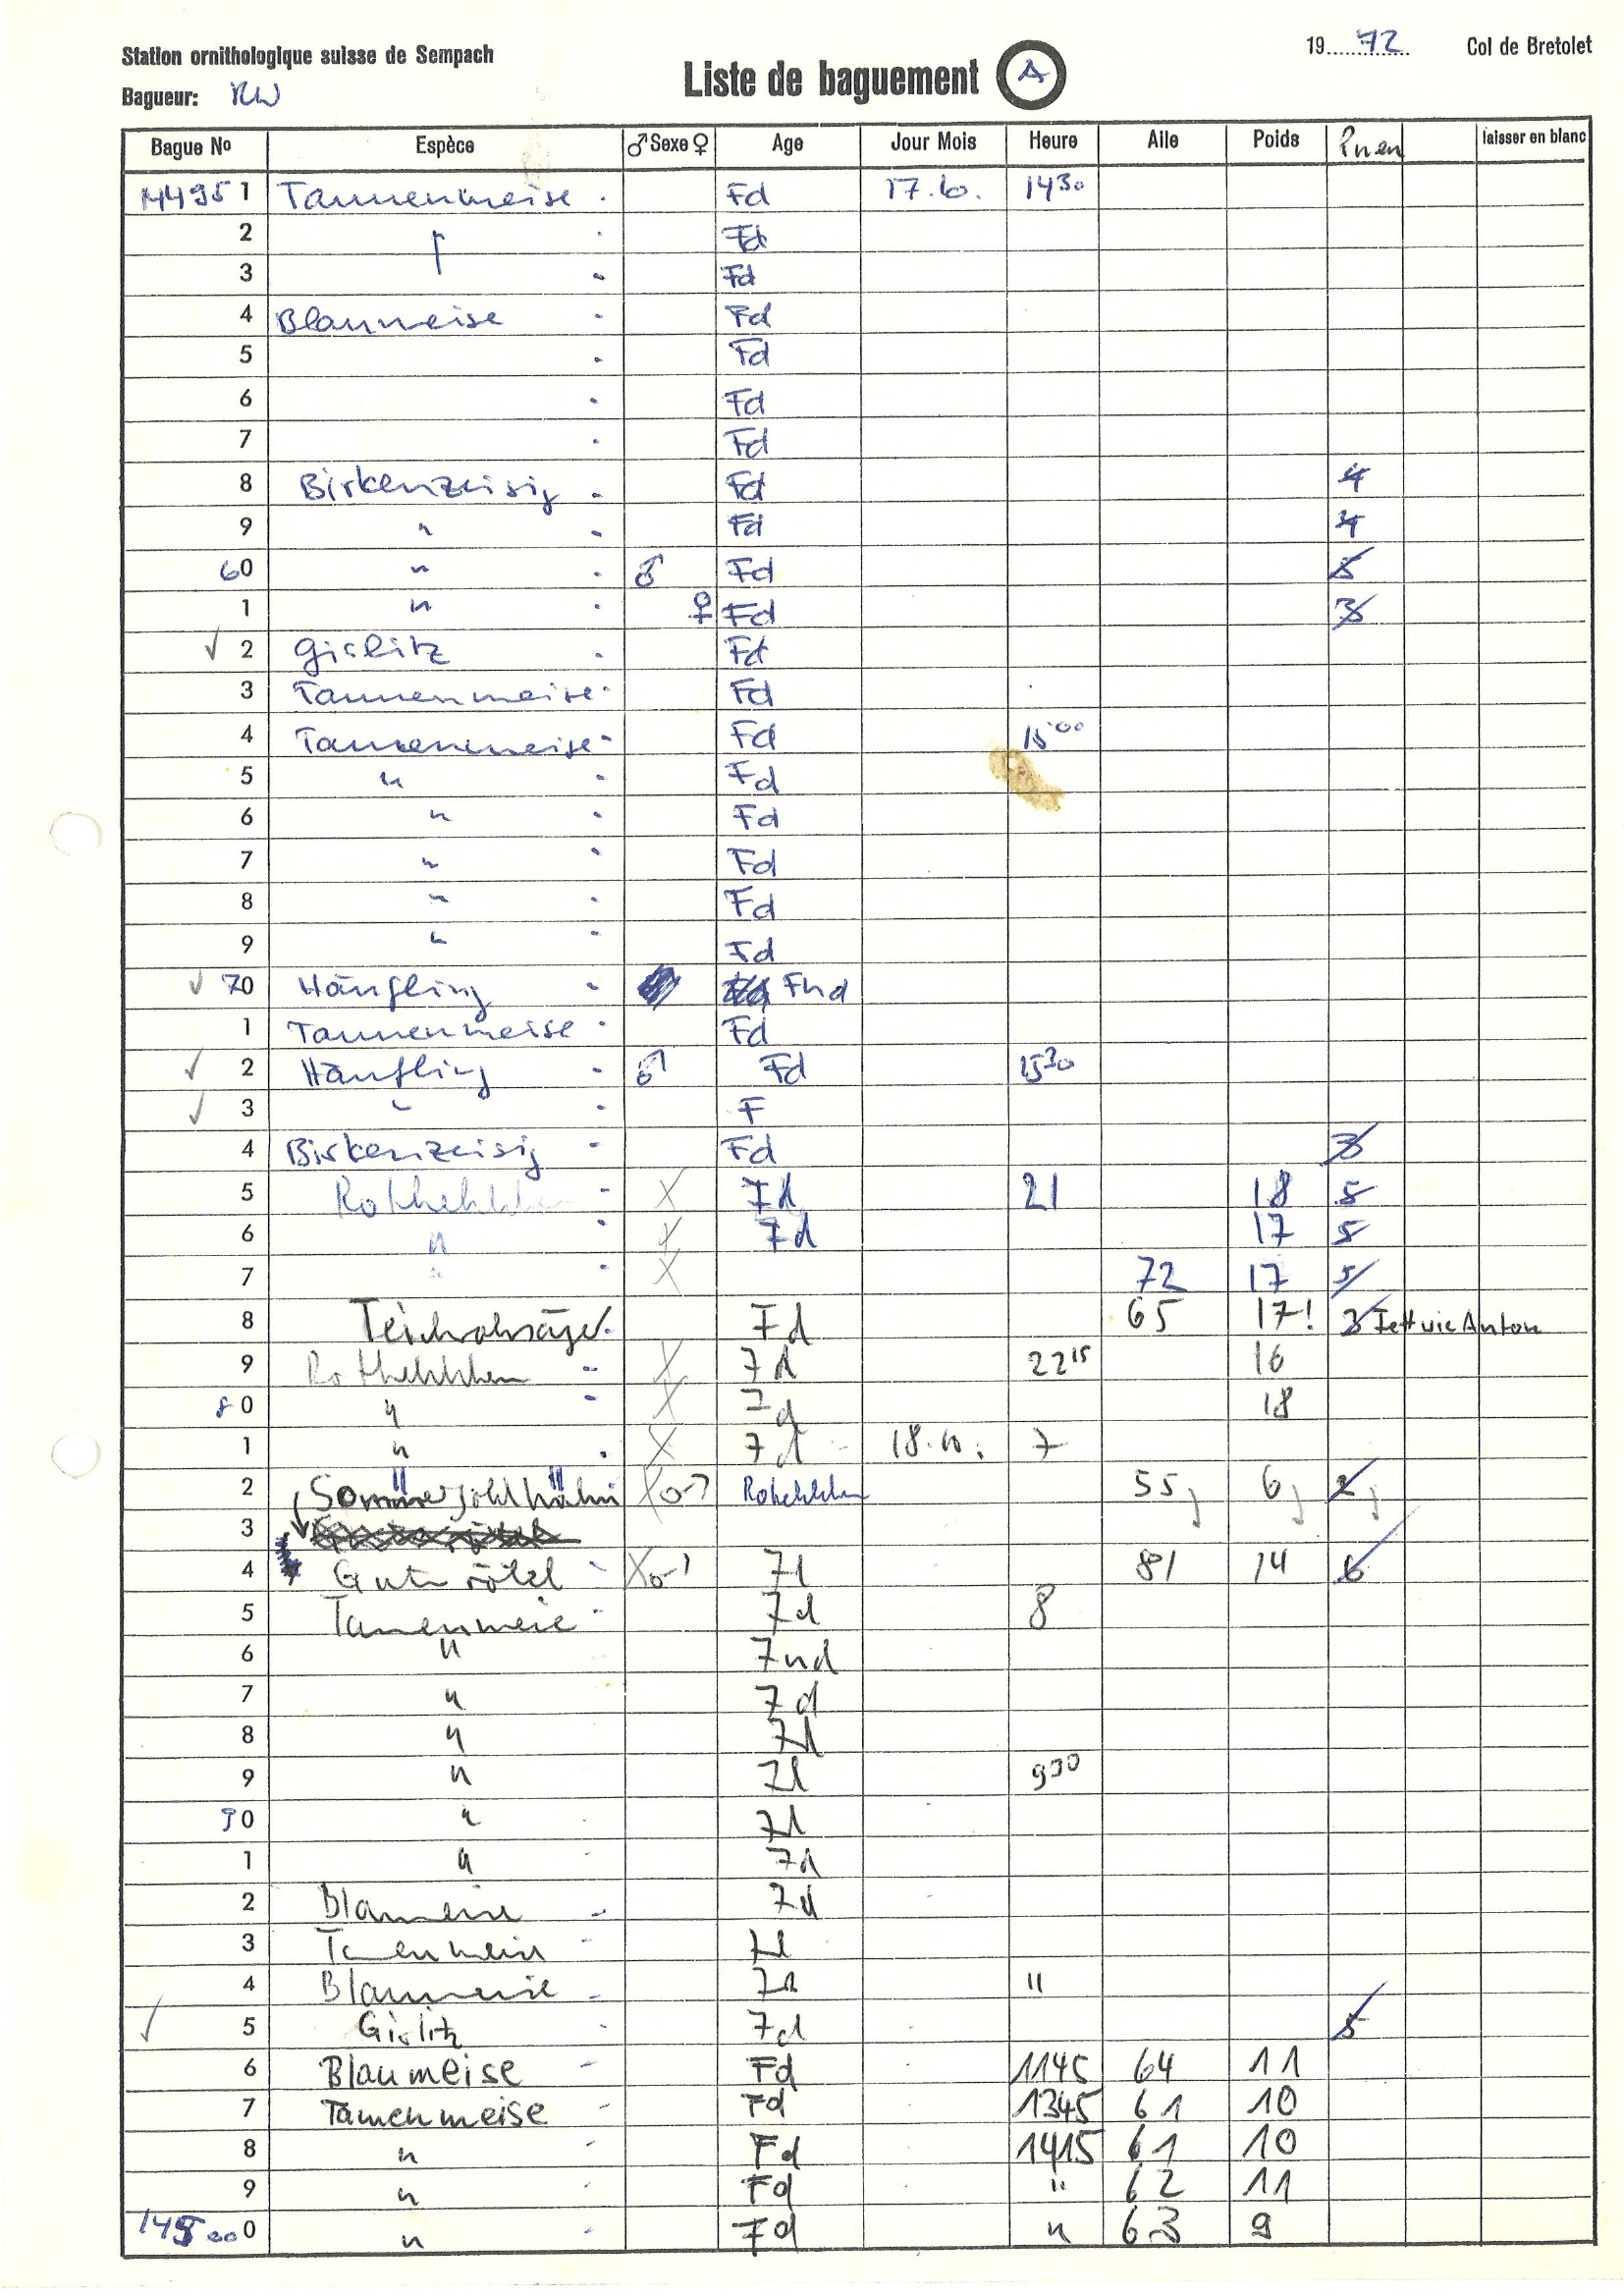 Station ornithologique suisse de Sempach
19 72 Col de Bretolet
Liste de baguement A
Bagueur: RW
Bague No Espèce ♂ Sexe ♀ Age Jour Mois Heure Aile Poids laisser en blanc
144951 Tannenmeise . Fd 17.10. 14 30
2 . Fd
3 . Fd
4 Blaumeise . Fd
5 . Fd
6 . Fd
7 . Fd
8 Birkenzeisig . Fd 4
9 " . Fd 4
60 " . ♂ Fd 5
1 " . ♀ Fd 3
✓ 2 Girlitz . Fd
3 Tannenmeise . Fd
4 Tannenmeise . Fd 15 00
5 " . Fd
6 " . Fd
7 " . Fd
8 " . Fd
9 " . Fd
✓ 70 Hänfling . Fnd
1 Tannenmeise . Fd
✓ 2 Hänfling . ♂ Fd 15 30
✓ 3 " . F
4 Birkenzeisig - Fd 3
5 Rotkehlchen - X 7d 21 18 5
6 " . X 7d 17 5
7 " . X 72 17 5
8 Teichrohrsäger . Fd 65 17! 3 Fett wie Anton
9 Rotkehlchen - X 7d 22 15 16
80 " - X 7d 18
1 " . X 7d 18.10. 7
2 Sommergoldhähn X ♂ Rotkehlchen 55 6 2
3
4 Gartenrötel - X ♂ 7d 81 14 6
5 Tannenmeise - 7d 8
6 " 7nd
7 " 7d
8 " 7d
9 " 7d 9 30
90 " 7d
1 " 7d
2 Blaumeise - 7d
3 Tannenmeise - 7d
4 Blaumeise - 7d "
✓ 5 Girlitz - 7d 5
6 Blaumeise - Fd 1145 64 11
7 Tannenmeise - Fd 1345 61 10
8 " - Fd 1415 61 10
9 " - Fd " 62 11
145000 " 7d " 63 9